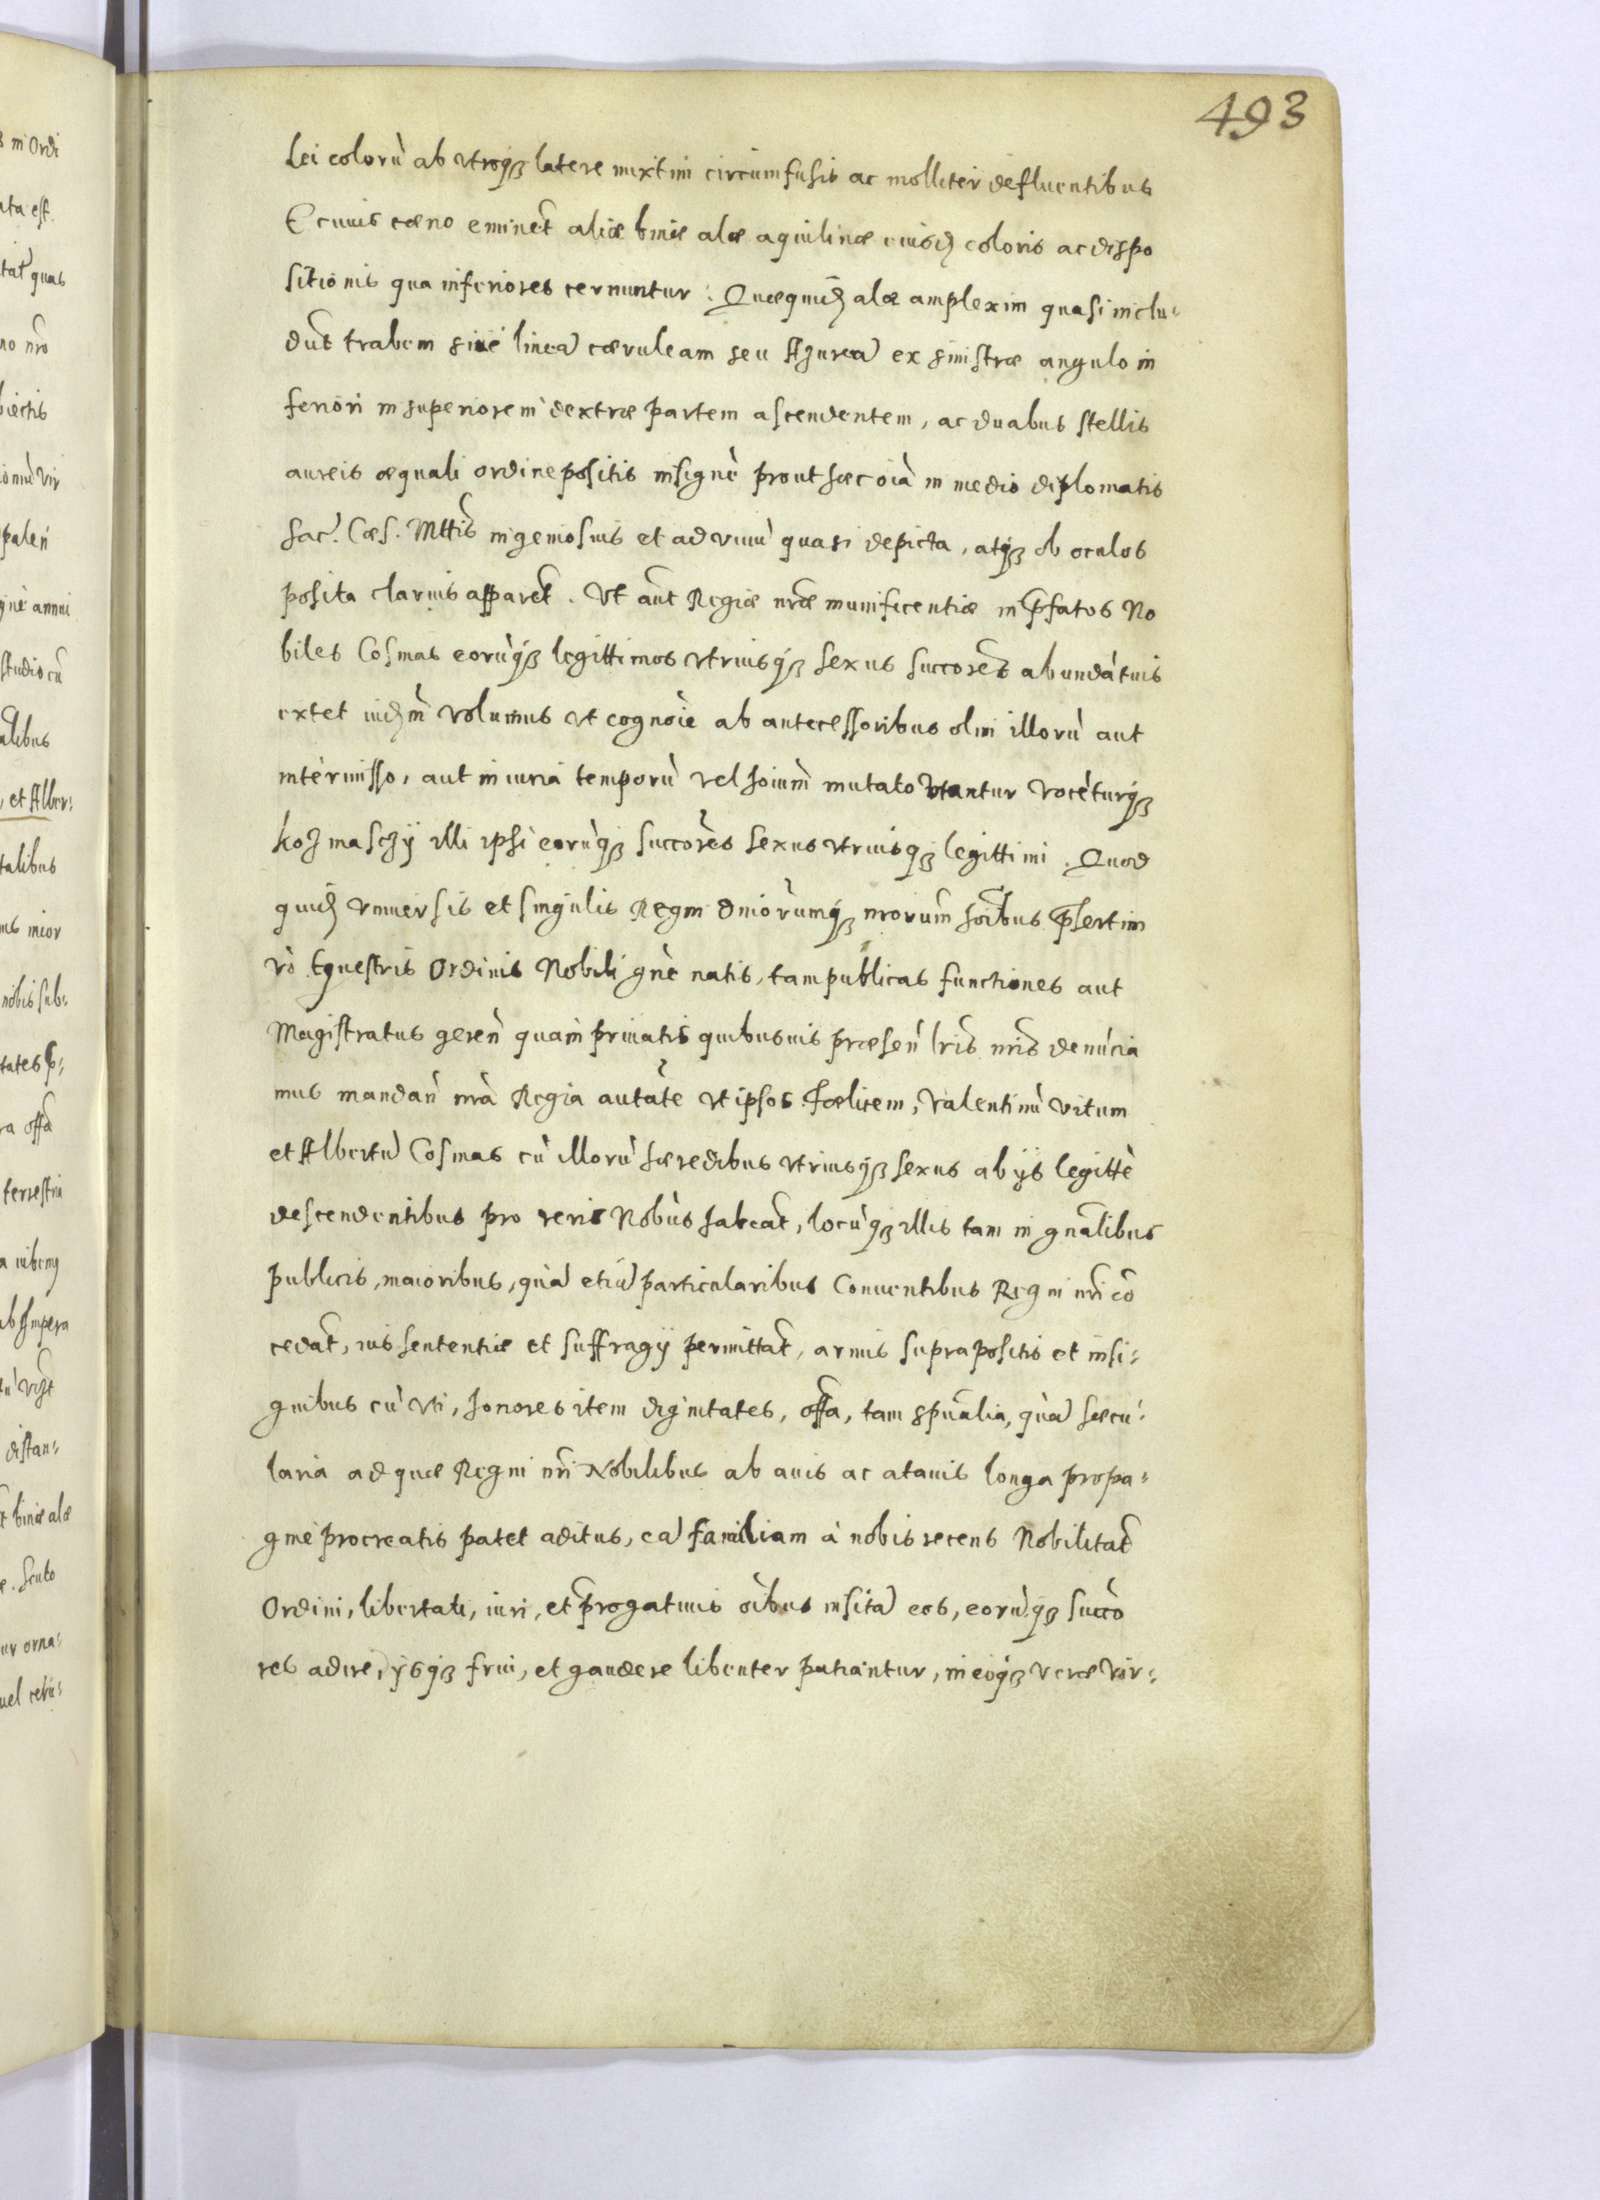 493
lei colorù ab utroqȝ latere mixtim circumfusis ac molliter defluentibus
E cuuis cœno eminet̃ aliæ binæ alæ aquilinæ eiusdȝ coloris ac dispo
sitionis qua inferiores cernuntur: Quæquidȝ alæ amplexim quasi inclu-
dūt trabem siuè lineā cæruleam seu Azureā ex sinistræ angulo in
feriori in superiorem dextræ partem ascendentem, ac duabus stellis
aureis æquali ordine positis insignè prout hæc oīa in medio diplomatis
Sac. Cæs. Mttis ingeniosius et ad uiuū quasi depicta, atqȝ ob oculos
posita clarius apparet̃. Ut aūt Regiæ nr̃æ munificentiæ in p̃fatos No
biles Cosmas eorùqȝ legittimos utriusqȝ sexus succores̃ abundātius
extet iidȝm volumus ut cognōie ab antecessoribus olim illorù aut
intermisso, aut iniuriā temporù vel hoīum mutato utantur vocēturqȝ
Kozmasczÿ illi ipsi eorùqȝ succores̃ sexus utriusqȝ legittimi. Quod
quidȝ vniuersis et singulis Regni Dniorumqȝ nrorum hoībus p̃sertim
v̀o Equestris Ordinis Nobili gnè natis, tam publicas functiones aut
Magistratus gereñ quam priuatis quibusuis præseñ lr̃is nr̃is denūcia
mus mandañ nr̃a Regia autate ut ipsos Fœlicem, Valentinù vitum
et Albertū Cosmas cù illorù hæredibus utriusqȝ sexus ab ÿs legittè
descendentibus pro veris Nobùs habeat̃, locùqȝ illis tam in gnãlibus
publicis, maioribus, quā etiā particularibus Conuentibus Regni nr̃i cō
cedat̃, ius sententiæ et suffragÿ permittat̃, armis supra positis et insi-
gnibus cù uti, honores item dignitates, offa, tam spũalia, quā sæcu-
laria ad quæ Regni nr̃i Nobilibus ab auis ac atauis longa propa-
gine procreatis patet aditus, eā familiam à nobis recens Nobilitat̃
Ordini, libertati, iuri, et p̃rogatiuis oībus insitā eos, eorùqȝ succo
res adire, ÿsqȝ frui, et gaudere libenter patiantur, in eoqȝ veræ vir-